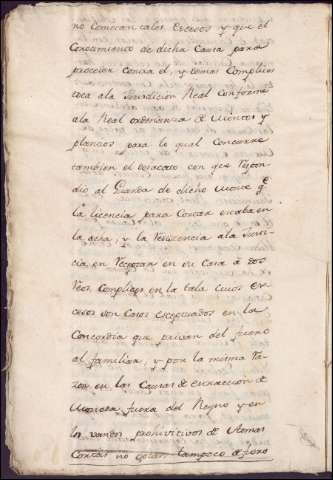 no cometan tales excesos y que el
Conocimiento de dicha Causa para
proceder contra el, y demas Complices
toca ala Jurisdicion Real Conforme
ala Real ordenanza de Montes y
plantios para lo qual Concurre
tambien el desacato con que respon
dio al Guarda de dicho Monte qe
la licencia para Cortar estaba en
la acha, y la resistencia ala Justi
cia en recoptar en su Casa á dos
reos Complices en la tala cuios ex
cesos son Casos exceptuados en la
Concordia que privan del fuero
al familiar, y por la misma ra
zon en las Causas de extraccion de
Moneda fuera del Reyno y en
los vandos prohivitivos de Armas
Cortas no gozan tampoco de fuero